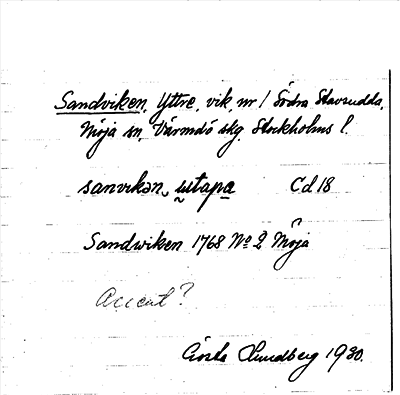 Sandviken, Yttre, vik, nr 1 Södra Stavsudda,
Möja sn, Värmdö skg. Stockholms l.
sanvikən, ustapa Cd 18
Sandwiken 1768 No 2 Möja
Accent?
Gösta Lundberg 1930.